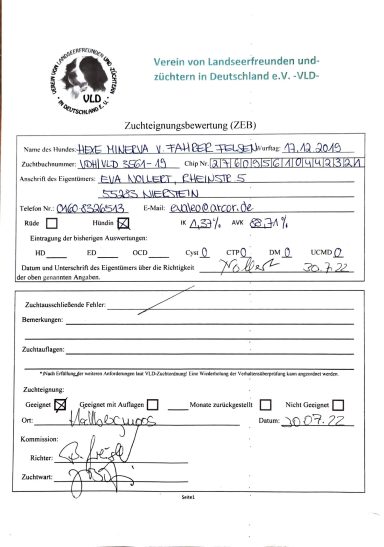 VEREIN VON LANDSEERFREUNDEN UND -ZÜCHTERN IN DEUTSCHLAND E.V.
VLD
Verein von Landseerfreunden und-
züchtern in Deutschland e.V. -VLD-
Zuchteignungsbewertung (ZEB)
Name des Hundes: HEXE MINERVA V. FAHRER FELSEN Wurftag: 17.12.2019
Zuchtbuchnummer: VDH/VLD 3561-19 Chip Nr. 276095610442321
Anschrift des Eigentümers: EVA NOLLERT, RHEINSTR 5
55283 NIERSTEIN
Telefon Nr.: 0160-8326513 E-Mail: evaleo@arcor.de
Rüde Hündin IK 1,37% AVK 88,71%
Eintragung der bisherigen Auswertungen:
HD ED OCD Cyst 0 CTP 0 DM 0 UCMD 0
Nollert 30.7.22
Datum und Unterschrift des Eigentümers über die Richtigkeit
der oben genannten Angaben.
Zuchtausschließende Fehler:
Bemerkungen:
Zuchtauflagen:
*(Nach Erfüllung der weiteren Anforderungen laut VLD-Zuchtordnung! Eine Wiederholung der Verhaltensüberprüfung kann angeordnet werden.
Zuchteignung:
Geeignet Geeignet mit Auflagen Monate zurückgestellt Nicht Geeignet
Ort: Datum: 30.07.22
Kommission:
Richter:
Zuchtwart:
Seite1